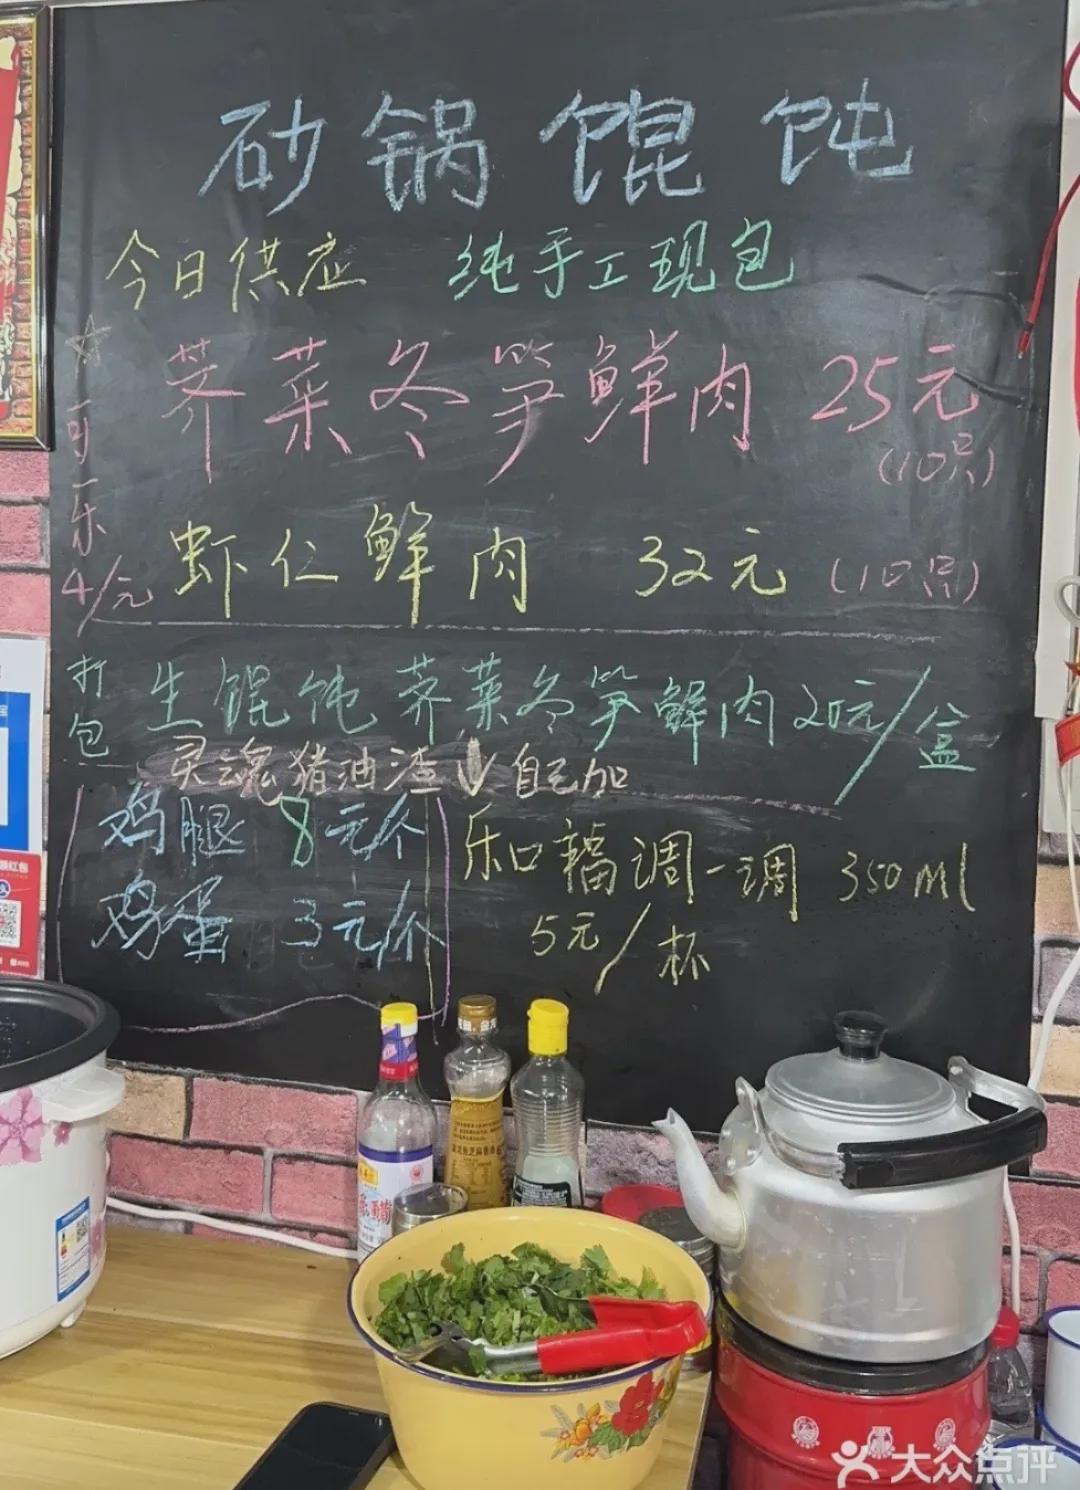 砂锅馄饨
今日供应 纯手工现包
荠菜冬笋鲜肉 25元
(10只)
虾仁鲜肉 32元 (10只)
☆可乐
4/元
打包
生馄饨荠菜冬笋鲜肉20元/盒
灵魂猪油渣↓自己加
鸡腿 8元/个
鸡蛋 3元/个
乐口福调一调 350ml
5元/杯
大众点评